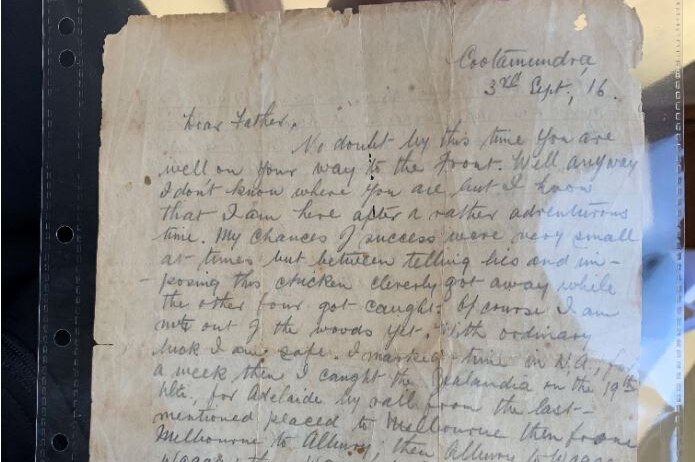 Cootamundra,
3rd Sept, 16.
Dear Father,
No doubt by this time you are
well on your way to the Front. Well anyway
I don't know where you are but I know
that I am here after a rather adventurous
time. My chances of success were very small
at times but between telling lies and im-
-posing this chicken cleverly got away while
the other four got caught. Of course I am
not out of the woods yet. With ordinary
luck I am safe. I marked-time in W.A. for
a week then I caught the Zealandia on the 19th
for Adelaide by rail from the last-
mentioned placed to Melbourne then from
Melbourne to Albury; then Albury to Wagga